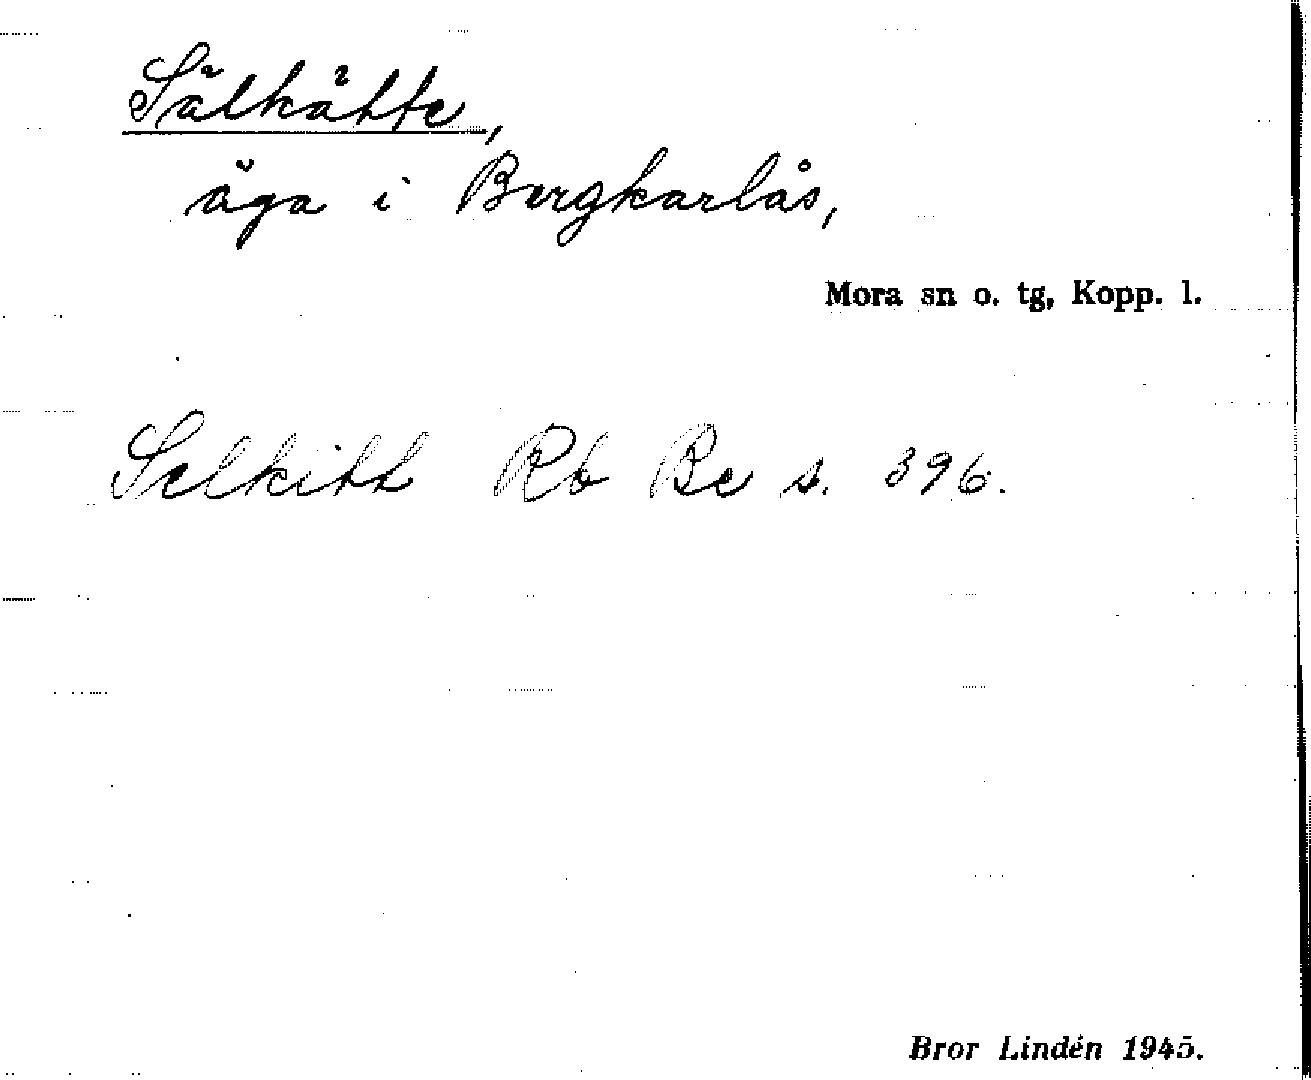 Sälkätte,
äga i Bergkarlås,
Mora sn o. tg, Kopp. l.
Selkitt Rb Be s. 396.
Bror Lindén 1945.